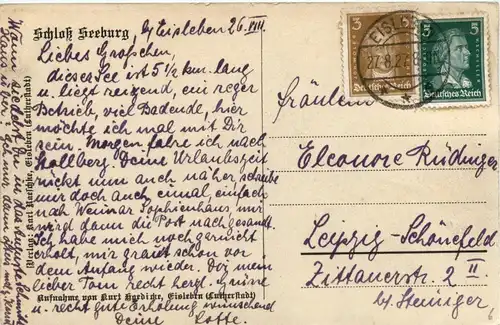 Schloß Seeburg
b/ Eisleben 26. VIII.
Liebes Großchen,
dieser See ist 5 1/2 km. lang
u. liegt reizend, ein reger
Betrieb, viel Badende, hier
möchte ich mal mit Dir
sein. Morgen fahre ich nach
Stollberg. Deine Urlaubszeit
rückt nun auch näher, schreibe
mir doch auch einmal, einfach
nach Weimar Sophienhaus mir
wird dann die Post nachgesandt.
Ich habe mich noch gar nicht
erholt, mir graut schon vor
dem Anfang wieder. Sei mein
lieber Tom recht herzl. Grüsse
u. recht gute Erholung wünschend
Deine Lotte.
Verlag: Karl Paeschke, Eisleben (Lutherstadt)
Aufnahme von Kurt Eisleben (Lutherstadt)
Wann wieder in das
3
5
Deutsches Reich
Deutsches Reich
EISLEBEN
27.8.27.
Fräulein
Eleonore Rüdinger
Leipzig-Schönefeld
Zittauerstr. 2 II
b/ Steiniger